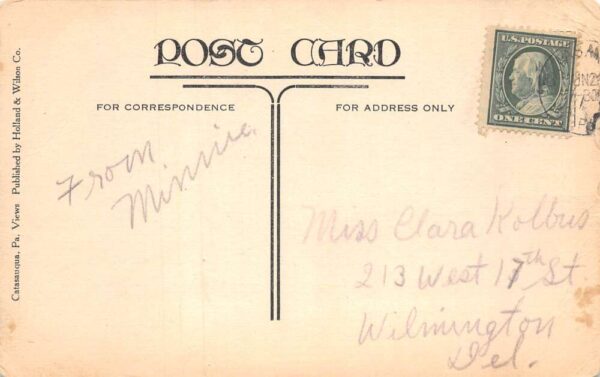 POST CARD
FOR CORRESPONDENCE
FOR ADDRESS ONLY
U.S. POSTAGE
ONE CENT
From
Minnie
Miss Clara Kolbus
213 West 17th St.
Wilmington
Del.
Catasauqua, Pa. Views Published by Holland & Wilson Co.